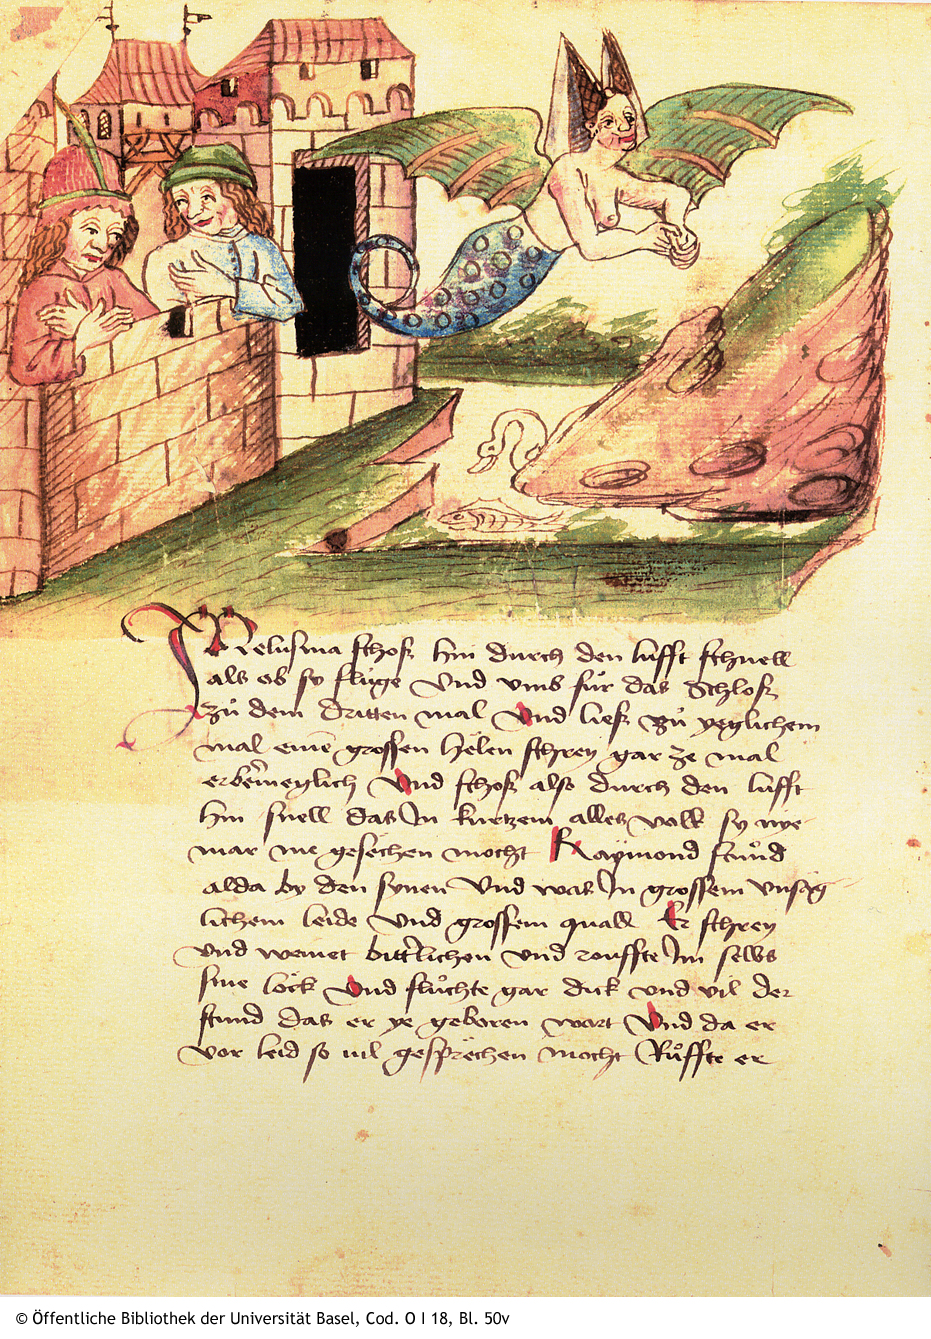 Melusina schoß hin durch den lufft schnell
als ob sy fluge Vnd vmb fůr das Schloß
zů dem dritten mal Vnd ließ zů yeglichem
mal einē grossen hëlen schrey gar ze mal
erbermeglich Vnd schoß also durch den lufft
hin snell das In kurtzem alles volk sy nye
mar me gesechen mocht Raymond stůnd
alda by den synen Vnd was In grossem vnsäg
lichem leide Vnd grossem quall Er schrey
vnd weinet bitterlichen vnd rouffte Im selbs
sine löck Vnd flůchte gar dick vnd vil der
stund das er ye geboren wart Vnd da er
vor leid so vil gesprechen mocht Růffte er
© Öffentliche Bibliothek der Universität Basel, Cod. O I 18, Bl. 50v